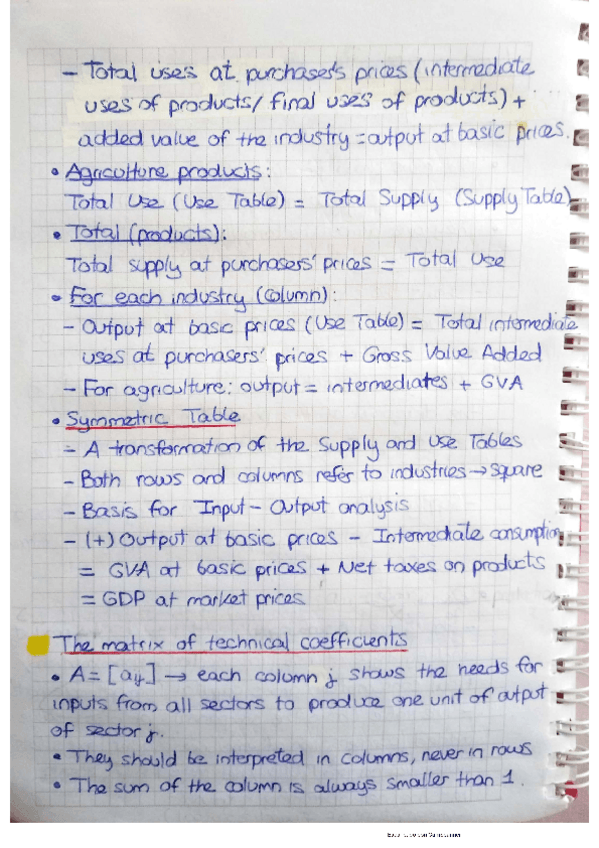 - Total uses at purchaser's prices (intermediate
uses of products/ final uses of products) +
added value of the industry = output at basic prices.
• Agriculture products:
Total Use (Use Table) = Total Supply (Supply Table)
• Total (products):
Total supply at purchasers' prices = Total Use
• For each industry (column):
- Output at basic prices (Use Table) = Total intermediate
uses at purchasers' prices + Gross Value Added
- For agriculture: output = intermediates + GVA
• Symmetric Table
- A transformation of the Supply and Use Tables
- Both rows and columns refer to industries → square
- Basis for Input - Output analysis
- (+) Output at basic prices - Intermediate consumption
= GVA at basic prices + Net taxes on products
= GDP at market prices
The matrix of technical coefficients
• A = [aij] → each column j shows the needs for
inputs from all sectors to produce one unit of output
of sector j.
• They should be interpreted in columns, never in rows
• The sum of the column is always smaller than 1.